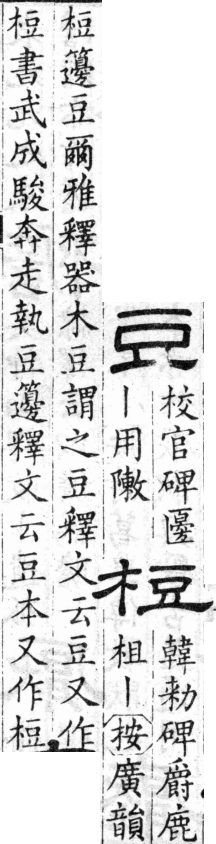 豆
校官碑
丨用敶
梪
韓勑碑爵鹿
柤丨按廣韻
梪籩豆爾雅釋器木豆謂之豆釋文云豆又作
梪書武成駿奔走執豆籩釋文云豆本又作梪